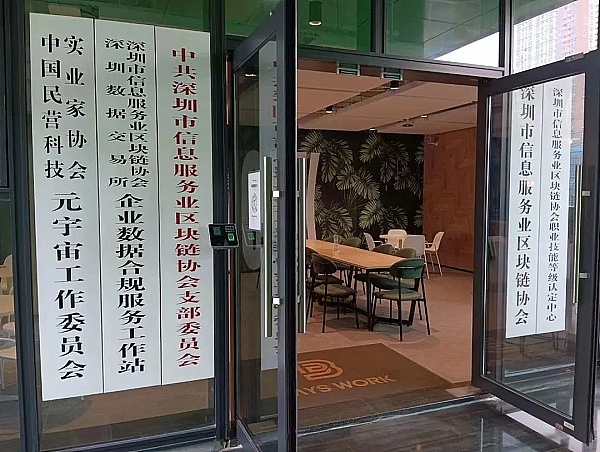 中国民营科技
实业家协会
元宇宙工作委员会
深圳市信息服务业区块链协会
深圳数据交易所
企业数据合规服务工作站
中共深圳市信息服务业区块链协会支部委员会
深圳市信息服务业区块链协会
深圳市信息服务业区块链协会职业技能等级认定中心
WORK